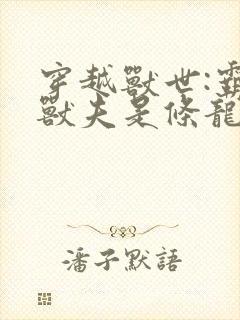 穿越獸世:霸
獸夫是條龍
潘子默語